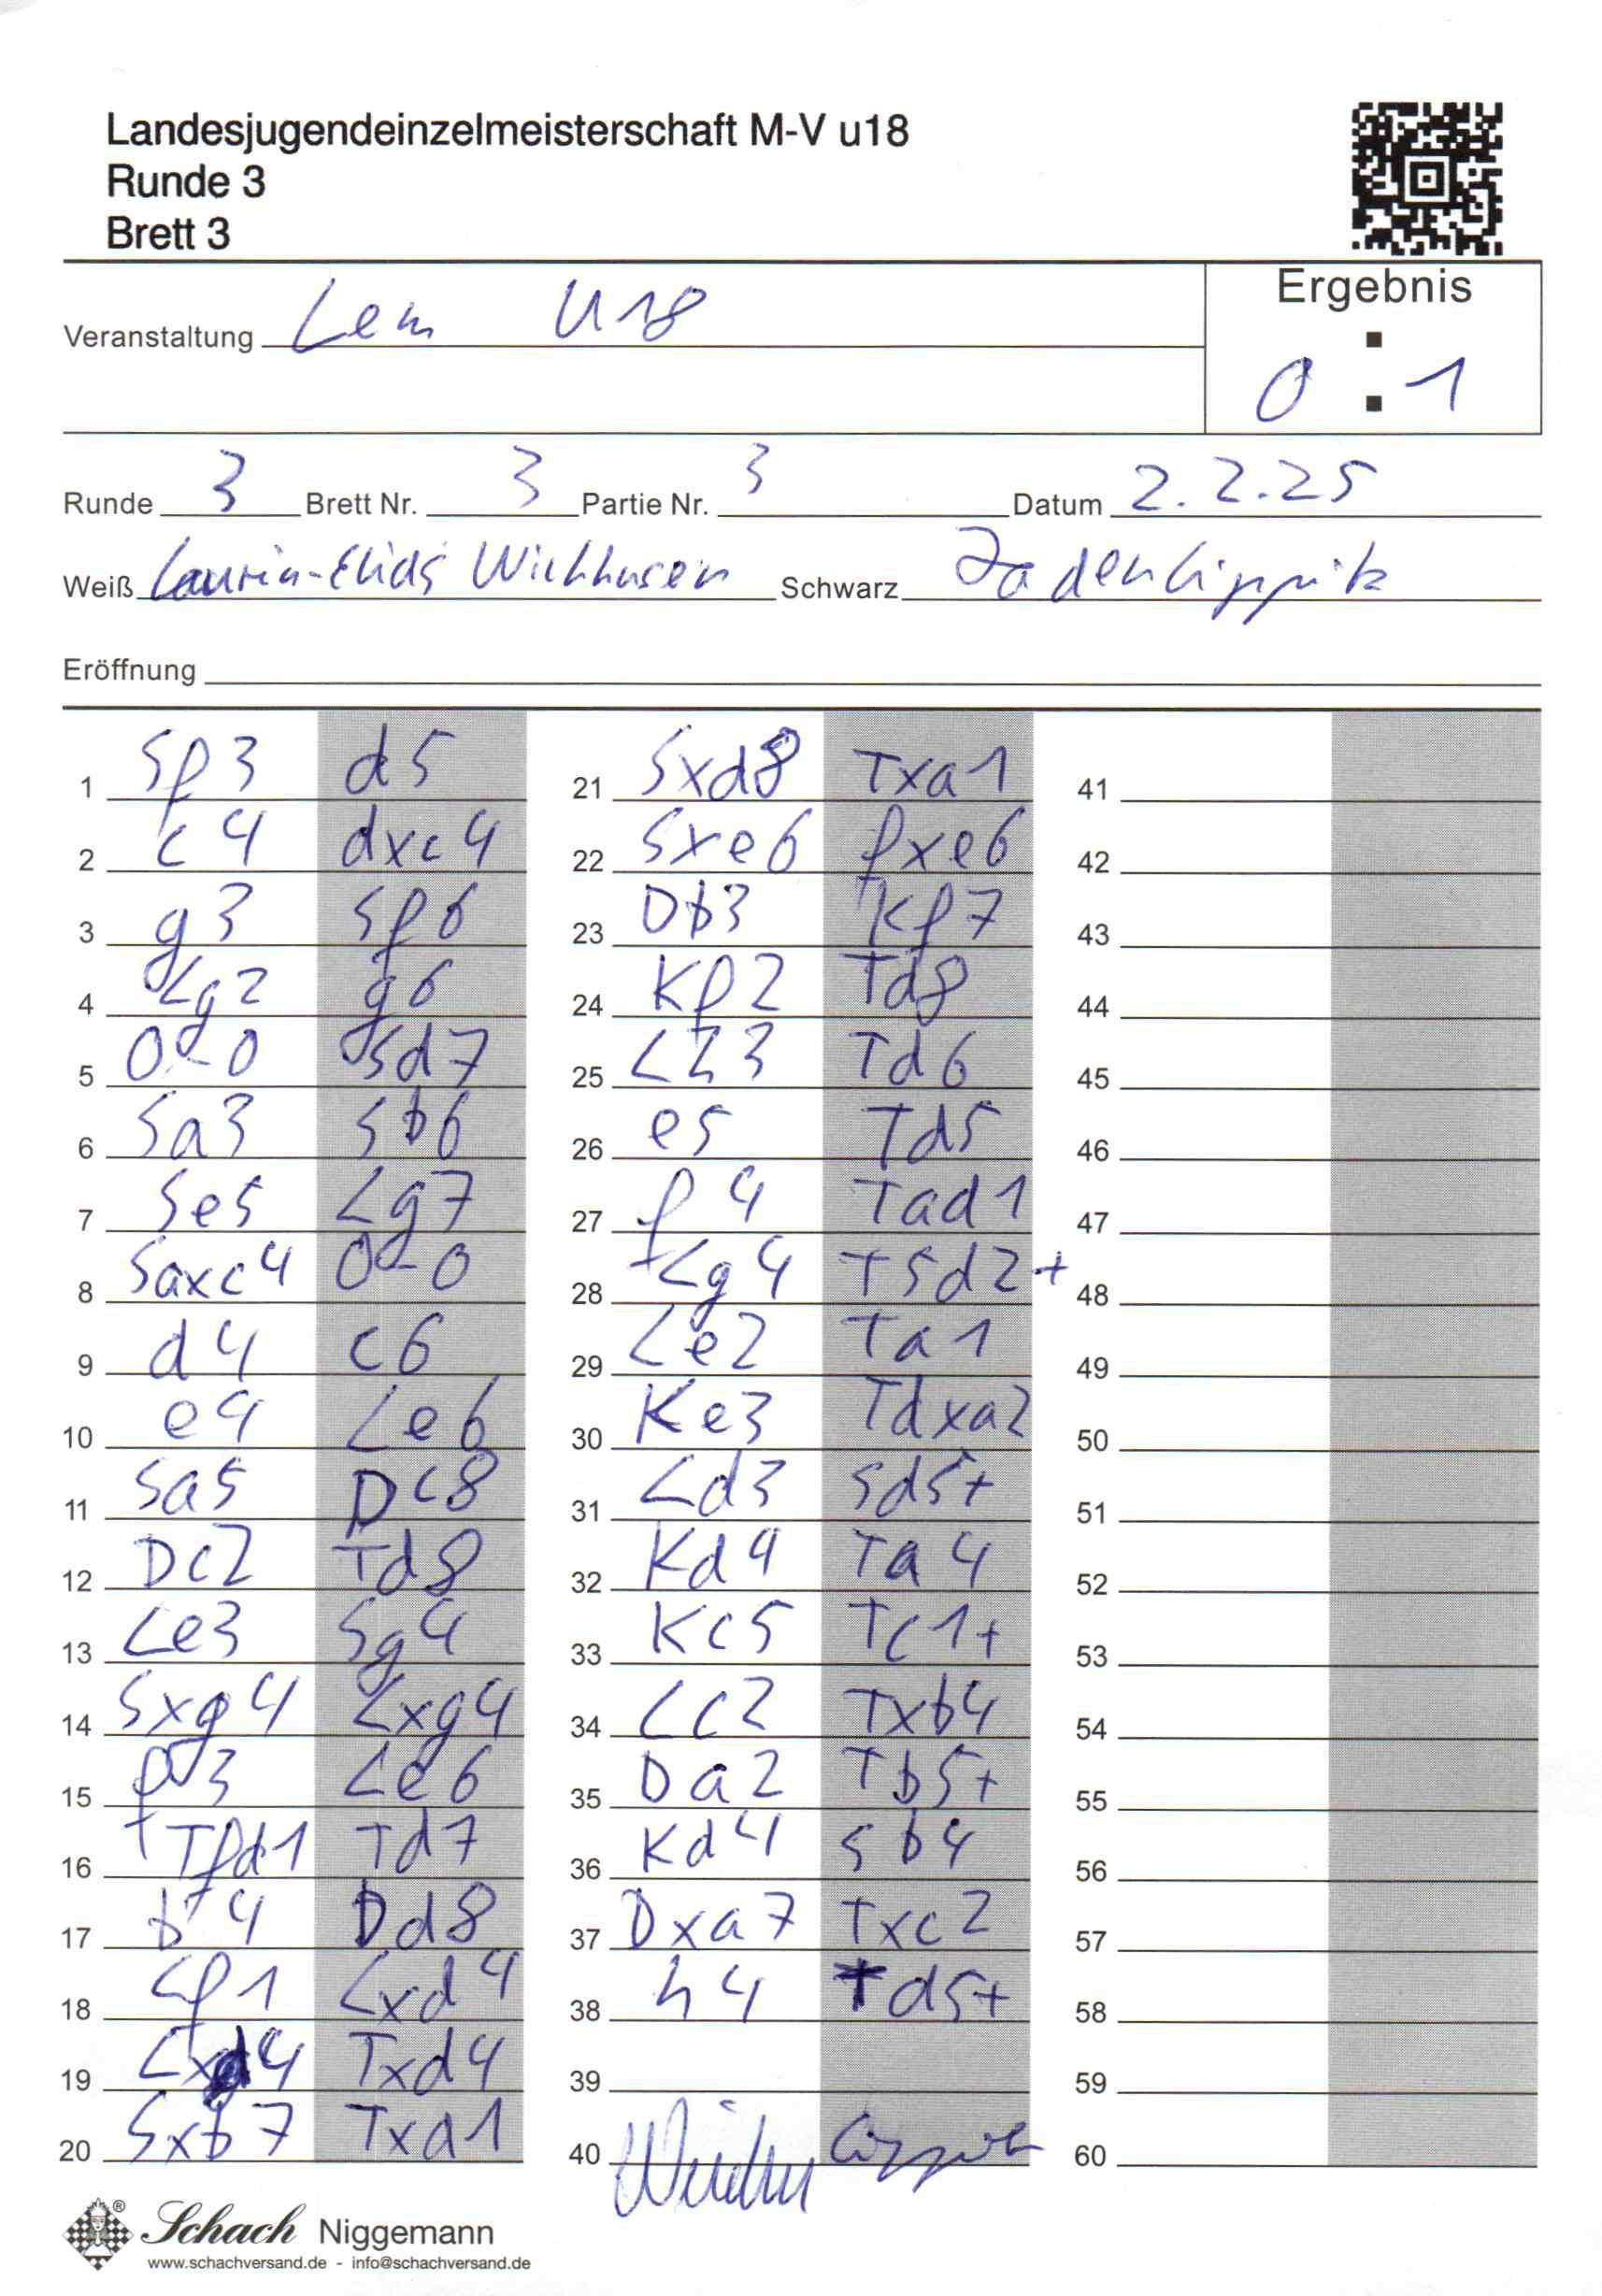 Landesjugendeinzelmeisterschaft M-V u18
Runde 3
Brett 3
Ergebnis
Veranstaltung Lem U18
0 : 1
Runde 3 Brett Nr. 3 Partie Nr. 3 Datum 2.2.25
Weiß Laurin-Elias Wickhusen Schwarz Jaden Lippritz
Eröffnung
1 Sf3 d5 21 Sxd8 Txa1 41
2 c4 dxc4 22 Sxe6 fxe6 42
3 g3 Sf6 23 Db3 Kf7 43
4 Lg2 g6 24 Kf2 Td8 44
5 0-0 Sd7 25 Lh3 Td6 45
6 Sa3 Sb6 26 e5 Td5 46
7 Se5 Lg7 27 f4 Tad1 47
8 Saxc4 0-0 28 Lg4 T5d2+ 48
9 d4 c6 29 Le2 Ta1 49
10 e4 Le6 30 Ke3 Tdxa2 50
11 Sa5 Dc8 31 Ld3 Sd5+ 51
12 Dc2 Td8 32 Kd4 Ta4 52
13 Le3 Sg4 33 Kc5 Tc1+ 53
14 Sxg4 Lxg4 34 Lc2 Txb4 54
15 f3 Le6 35 Da2 Tb5+ 55
16 Tfd1 Td7 36 Kd4 Sb4 56
17 b4 Dd8 37 Dxa7 Txc2 57
18 Lf1 Lxd4 38 h4 Td5+ 58
19 Lxd4 Txd4 39 59
20 Sxb7 Txd1 40 60
Schach Niggemann
www.schachversand.de - info@schachversand.de